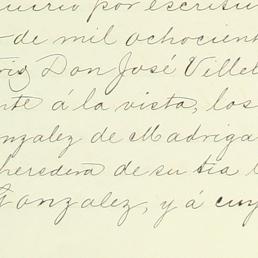 uirio por escritu
de mil ochocient
rid Don José Villel
nte á la vista, los
onzalez de Madriga
heredera de su tia
Gonzalez, y á cuy